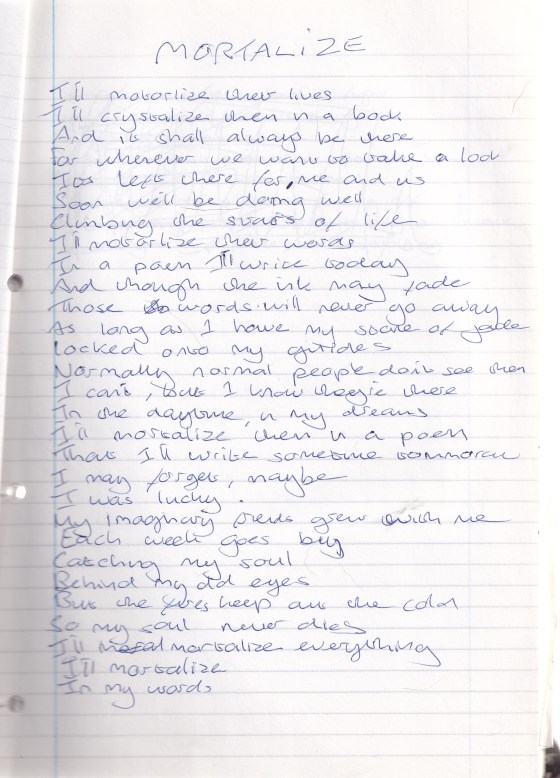 MORTALIZE
I'll motortize their lives
I'll crystalize them in a book
And it shall always be there
For wherever we want to take a look
Its left there for, me and us
Soon we'll be doing well
Climbing the stairs of life
I'll motortlize their words
In a poem I'll write today
And though the ink may fade
Those words will never go away
As long as I have my stone of jade
Locked onto my guides
Normally normal people don't see them
I can't, but I know they're there
In the daytime, in my dreams
I'll mortalize them in a poem
Thats I'll write sometime tommorow
I may forget, maybe
I was lucky.
My imaginary frends grew with me
Each week goes buy
Catching my soul
Behind my old eyes
But the keep out the cold
So my soul never dies
I'll mortalize everything
I'll mortalize
In my words